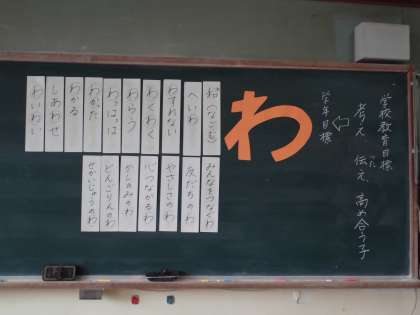 学校教育目標
考え 伝え、高め合う子
つた
学年目標
わ
和(なごむ)
へいわ
わすれない
わくわく
わらう
わっはっは
わかた
わかる
しあわせ
わいわい
みんなをつなぐわ
友だちのわ
やさしさのわ
心つながるわ
かしのみのわ
どんぐりんのわ
せかいじゅうのわ